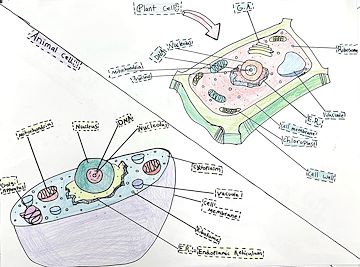 Plant Cell
G.A
Ribosome
DNA Nucleus
mitochondria
Vacuole
E.R
Cell membrane
Chloroplast
Cell Wall
Animal Cell
mitochondria
Nucleus
DNA
Nucleolus
Cytoplasm
Vacuole
Cell
Membrane
E.R : Endoplasmic Reticulum